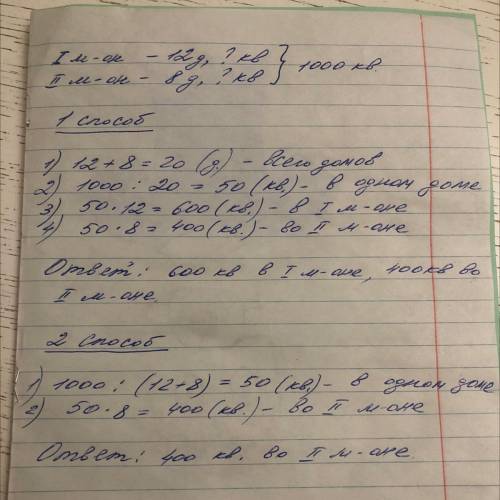 I м-он - 12 д, ? кв } 1000 кв.
II м-он - 8 д, ? кв
1 способ
1) 12 + 8 = 20 (д.) - всего домов
2) 1000 : 20 = 50 (кв.) - в одном доме
3) 50 · 12 = 600 (кв.) - в I м-оне
4) 50 · 8 = 400 (кв.) - во II м-оне
Ответ: 600 кв в I м-оне, 400 кв во
II м-оне.
2 способ
1) 1000 : (12+8) = 50 (кв.) - в одном доме
2) 50 · 8 = 400 (кв.) - во II м-оне
Ответ: 400 кв. во II м-оне.